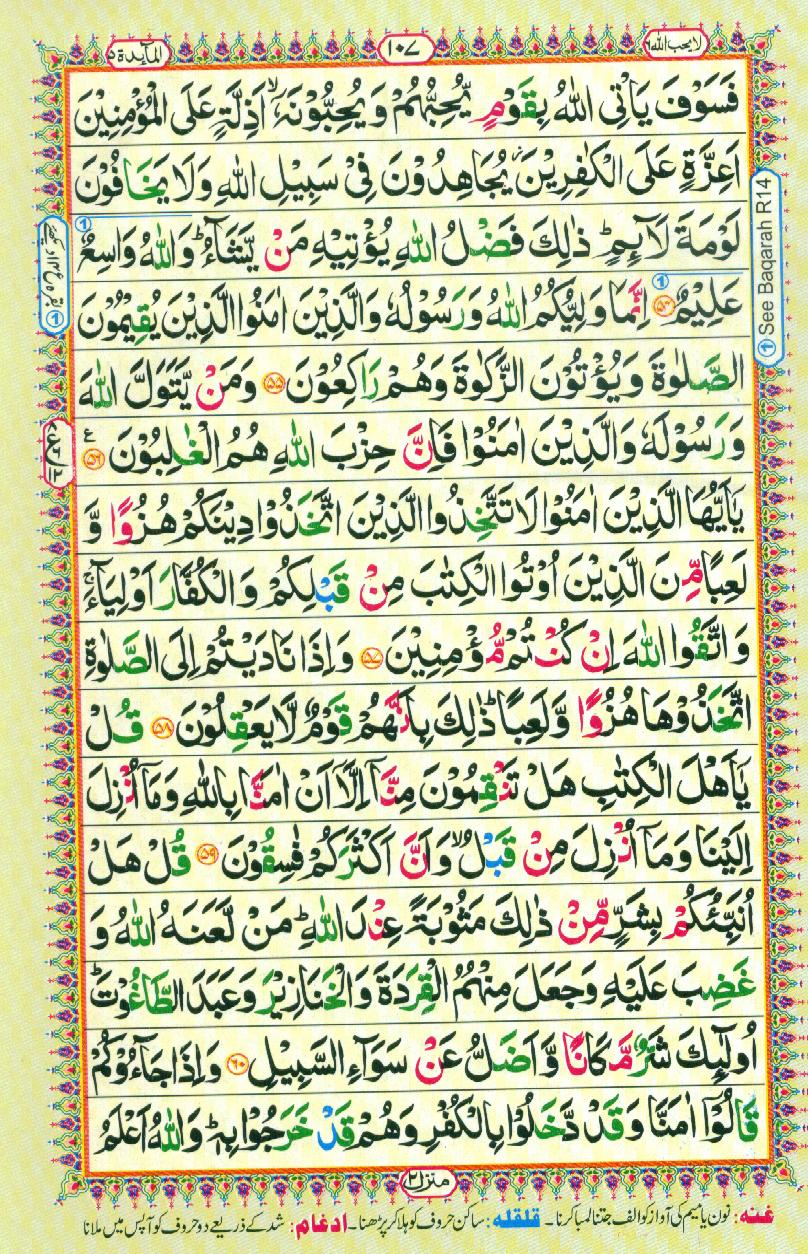 لا یحب اللہ ٦
١٠٧
المآئدة ٥
فَسَوْفَ يَاْتِى اللّٰهُ بِقَوْمٍ يُّحِبُّهُمْ وَيُحِبُّوْنَهٗۤ ۙ اَذِلَّةٍ عَلَى الْمُؤْمِنِيْنَ
اَعِزَّةٍ عَلَى الْكٰفِرِيْنَ ؗ يُجَاهِدُوْنَ فِىْ سَبِيْلِ اللّٰهِ وَلَا يَخَافُوْنَ
لَوْمَةَ لَآئِمٍ ؕ ذٰلِكَ فَضْلُ اللّٰهِ يُؤْتِيْهِ مَنْ يَّشَآءُ ؕ وَاللّٰهُ وَاسِعٌ
عَلِيْمٌ ۝۵۴ اِنَّمَا وَلِيُّكُمُ اللّٰهُ وَرَسُوْلُهٗ وَالَّذِيْنَ اٰمَنُوا الَّذِيْنَ يُقِيْمُوْنَ
الصَّلٰوةَ وَيُؤْتُوْنَ الزَّكٰوةَ وَهُمْ رٰكِعُوْنَ ۝۵۵ وَمَنْ يَّتَوَلَّ اللّٰهَ
وَرَسُوْلَهٗ وَالَّذِيْنَ اٰمَنُوْا فَاِنَّ حِزْبَ اللّٰهِ هُمُ الْغٰلِبُوْنَ ۝۵۶ ع
يٰۤاَيُّهَا الَّذِيْنَ اٰمَنُوْا لَا تَتَّخِذُوا الَّذِيْنَ اتَّخَذُوْا دِيْنَكُمْ هُزُوًا وَّ
لَعِبًا مِّنَ الَّذِيْنَ اُوْتُوا الْكِتٰبَ مِنْ قَبْلِكُمْ وَالْكُفَّارَ اَوْلِيَآءَ ۚ
وَاتَّقُوا اللّٰهَ اِنْ كُنْتُمْ مُّؤْمِنِيْنَ ۝۵۷ وَاِذَا نَادَيْتُمْ اِلَى الصَّلٰوةِ
اتَّخَذُوْهَا هُزُوًا وَّلَعِبًا ؕ ذٰلِكَ بِاَنَّهُمْ قَوْمٌ لَّا يَعْقِلُوْنَ ۝۵۸ قُلْ
يٰۤاَهْلَ الْكِتٰبِ هَلْ تَنْقِمُوْنَ مِنَّاۤ اِلَّاۤ اَنْ اٰمَنَّا بِاللّٰهِ وَمَاۤ اُنْزِلَ
اِلَيْنَا وَمَاۤ اُنْزِلَ مِنْ قَبْلُ ۙ وَاَنَّ اَكْثَرَكُمْ فٰسِقُوْنَ ۝۵۹ قُلْ هَلْ
اُنَبِّئُكُمْ بِشَرٍّ مِّنْ ذٰلِكَ مَثُوْبَةً عِنْدَ اللّٰهِ ؕ مَنْ لَّعَنَهُ اللّٰهُ وَ
غَضِبَ عَلَيْهِ وَجَعَلَ مِنْهُمُ الْقِرَدَةَ وَالْخَنَازِيْرَ وَعَبَدَ الطَّاغُوْتَ ؕ
اُولٰٓئِكَ شَرٌّ مَّكَانًا وَّاَضَلُّ عَنْ سَوَآءِ السَّبِيْلِ ۝۶۰ وَاِذَا جَآءُوْكُمْ
قَالُوْۤا اٰمَنَّا وَقَدْ دَّخَلُوْا بِالْكُفْرِ وَهُمْ قَدْ خَرَجُوْا بِهٖ ؕ وَاللّٰهُ اَعْلَمُ
① See Baqarah R14
منزل ٢
غنہ: نون یا میم کی آواز کو الف جتنا لمبا کرنا۔ قلقلہ: ساکن حروف کو ہلا کر پڑھنا۔ ادغام: شد کے ذریعے دو حروف کو آپس میں ملانا